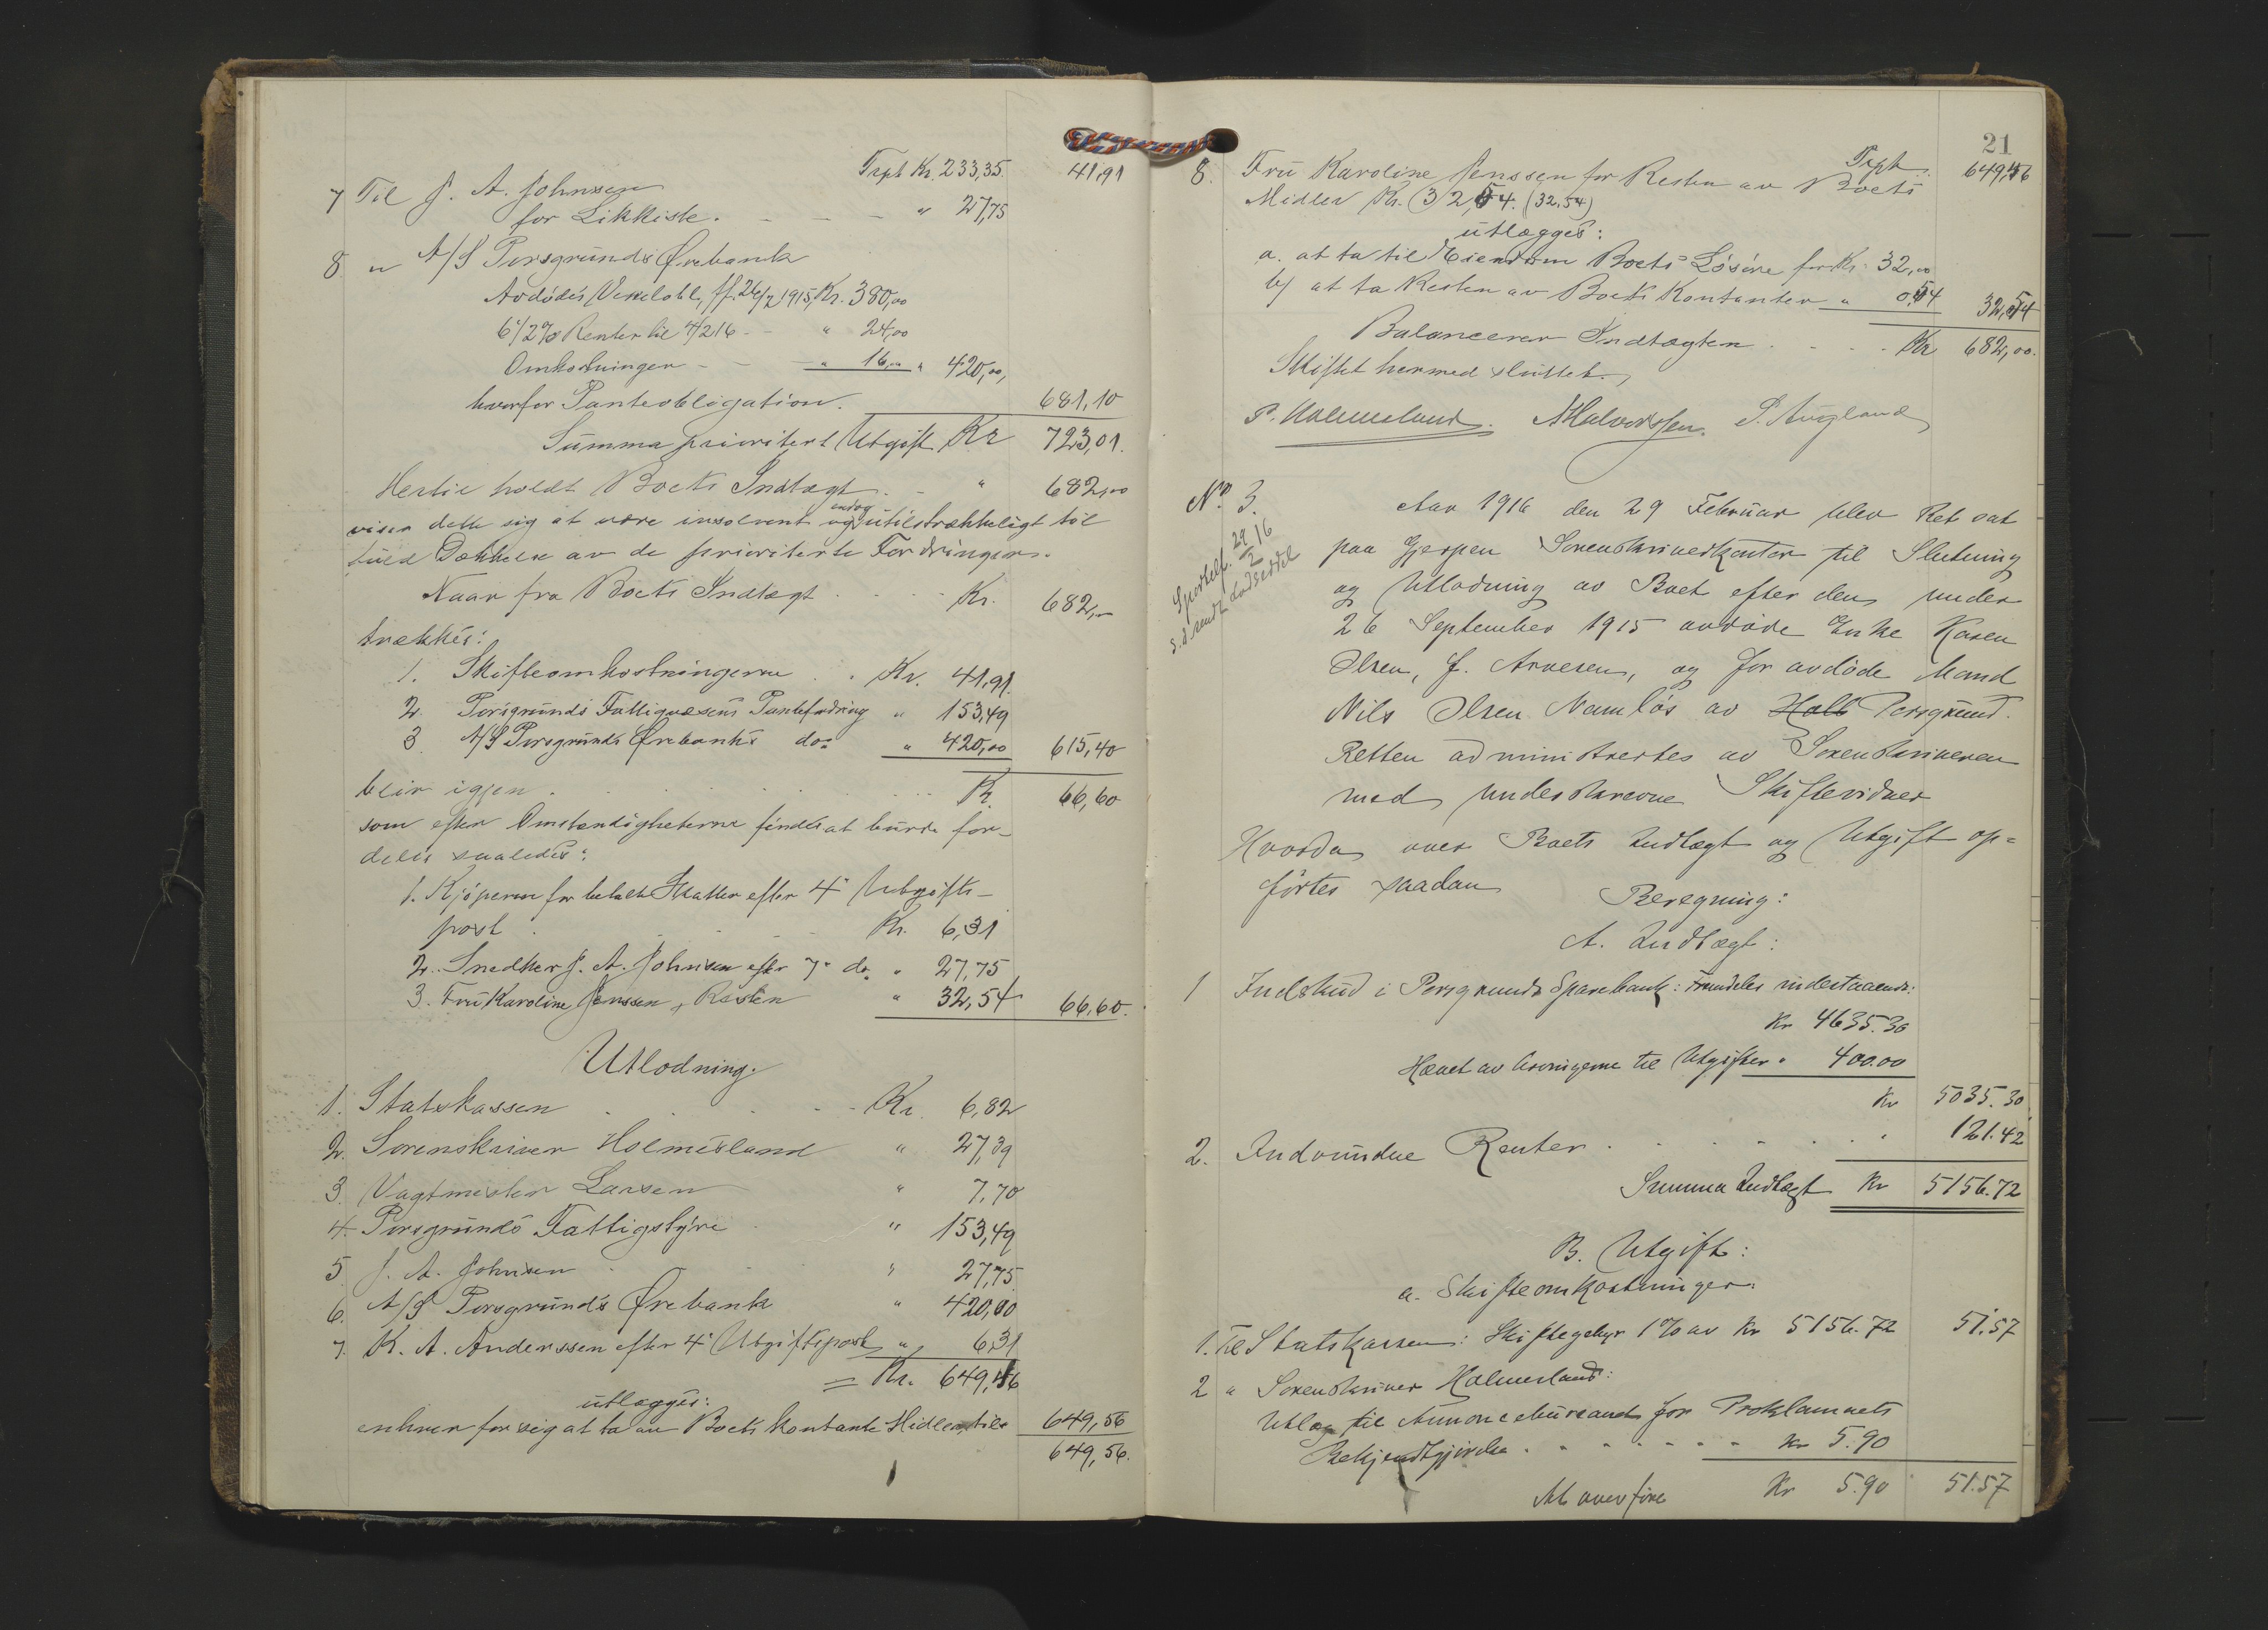 Trpt Kr. 233,35. 41,91
7 Til J. A. Johnsen
for Likkiste. - - - " 27,75
8 " A/S Porsgrunds Ørebank
Avdødes Vexelobl. ff. 26/7 1915, Kr. 380,00
6 1/2 % Renter til 4/2 16 - - " 24,00
Omkostninger - - " 16,00 " 420,00,
hvorfor Panteobligation. 681,10
Summa prioritert Utgift Kr 723,01.
Hertil holdt Boets Indtægt - " 682,00
viser dette sig at være insolvent og endog utilstrækkeligt til
fuld Dækkelse av de prioriterte Fordringer.
Naar fra Boets Indtægt . . . . Kr. 682,00
trækkes:
1. Skifteomkostningerne . . Kr. 41,91.
2. Porsgrunds Fattigvæsens Pantefordring " 153,49
3. A/S Porsgrunds Ørebanks do: " 420,00 615,40
blir igjen . . . . Kr. 66,60
som efter Omstændigheterne findes at burde for-
deles saaledes:
1. Kjøperen for betalt Skatter efter 4de Utgifts-
post . . . . Kr. 6,31
2. Snedker J. A. Johnsen efter 7de do. " 27,75
3. Fru Karoline Jenssen, Resten " 32,54 66,60.
Utlodning.
1. Statskassen . . . . Kr. 6,82
2. Sorenskriver Holmesland " 27,39
3. Vagtmester Larsen " 7,70
4. Porsgrunds Fattigstyre . " 153,49
5. J. A. Johnsen . . " 27,75
6. A/S Porsgrund's Ørebank " 420,00
7. K. A. Anderssen efter 4de Utgiftspost " 6,31
= Kr. 649,46
utlægges:
enhver for sig at ta av Boets kontante Midler tils 649,56
649,56.
21
Trpt. 649,46
8. Fru Karoline Jenssen for Resten av Boets
Midler Kr. 32,54. (32,54)
utlægges:
a. at ta til Eiendom Boets Løsøre for Kr. 32,00
b) at ta Resten av Boets Kontanter " 0,54 32,54
Balancerer Indtægten . . . . Kr 682,00.
Skiftet hermed sluttet.
P. Holmesland. N Halvorssen. S. Augland
No 3.
Sportelf. 29/2 16
s.d. sendt Lodseddel
Aar 1916 den 29 Februar blev Ret sat
paa Gjerpen Sorenskriverkontor til Slutning
og Utlodning av Boet efter den under
26 September 1915 avdøde Enke Karen
Olsen, f. Arnesen, og før avdøde Mand
Nils Olsen Namløs av Hall Porsgrund.
Retten administrertes av Sorenskriveren
med underskrevne Skiftevidner
Hvorda over Boets Indtægt og Utgift op=
førtes saadan
Beregning:
A. Indtægt:
1 Indskud i Porsgrunds Sparebank: Fremdeles indestaaende:
Kr 4635.30
Hævet av Arvingerne til Utgifter " 400.00
Kr 5035.30
2. Indvundne Renter . . . . . " 121.42
Summa Indtægt Kr 5156.72
B. Utgift:
a. Skifteomkostninger:
1. Til Statskassen: Skiftegebyr 1 % av Kr 5156.72 51.57
2 " Sorenskriver Holmesland:
Utlæg til Annoncebureauet for Proklamaets
Bekjendtgjørelse . . . . . . Kr 5.90
At overføre Kr 5.90 51.57